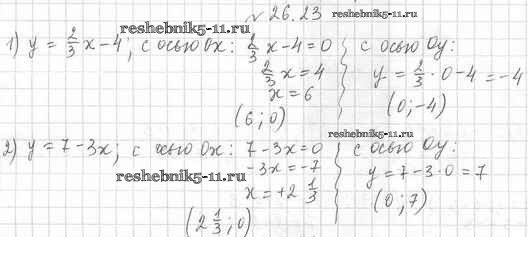 № 26.23
reshebnik5-11.ru
1) y = 2/3 x - 4; с осью Ox: 2/3 x - 4 = 0 с осью Oy:
2/3 x = 4 y = 2/3 · 0 - 4 = -4
x = 6 (0; -4)
(6; 0)
reshebnik5-11.ru
2) y = 7 - 3x; с осью Ox: 7 - 3x = 0 с осью Oy:
-3x = -7 y = 7 - 3 · 0 = 7
reshebnik5-11.ru
x = +2 1/3 (0; 7)
(2 1/3; 0)